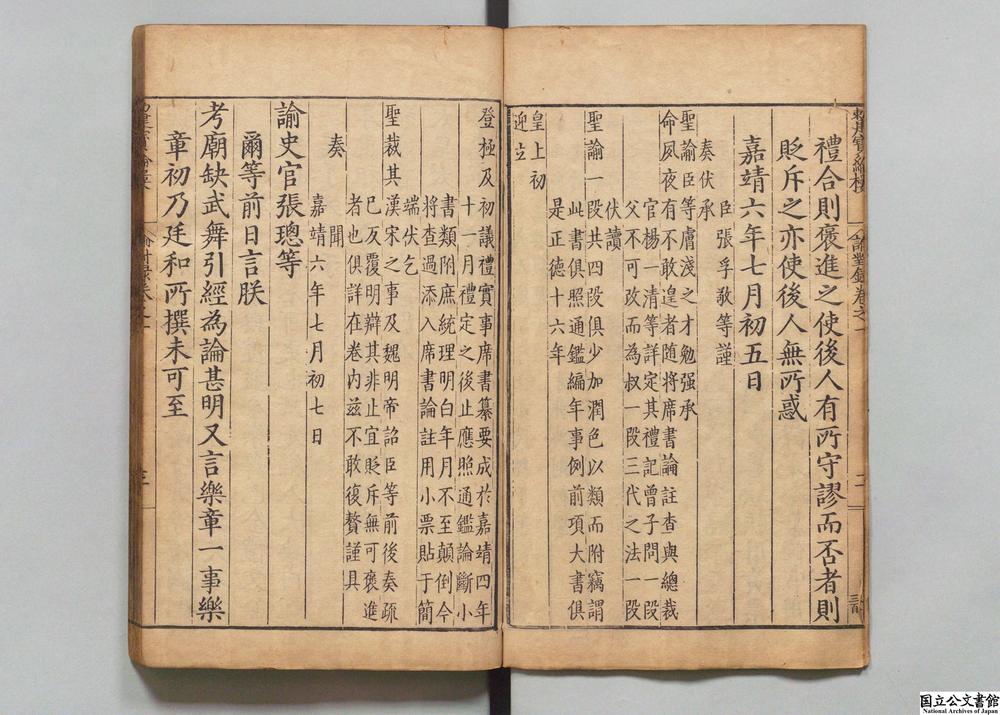 諭對錄卷之一
二
禮合則褒進之使後人有所守謬而否者則
貶斥之亦使後人無所惑
嘉靖六年七月初五日
臣張孚敬等謹
奏伏承
聖諭臣等膚淺之才勉强承
命夙夜有不敢遑者隨將席書論註查與總裁
官楊一清等詳定其禮記曾子問一段
父不可改而為叔一段三代之法一段
伏讀
聖諭一段共四段俱少加潤色以類而附竊謂
此書俱照通鑑編年事例前項大書俱
是正德十六年
皇上初
迎立
登極及初議禮實事席書纂要成於嘉靖四年
十一月禮定之後止應照通鑑論斷小
書類附庶統理明白年月不至顛倒今
將查過添入席書論註用小票貼于簡
端伏乞
聖裁其漢宋之事及魏明帝詔臣等前後奏疏
已反覆明辯其非止宜貶斥無可褒進
者也俱詳在卷內茲不敢復贅謹具
奏聞
嘉靖六年七月初七日
諭史官張璁等
爾等前日言朕
考廟缺武舞引經為論甚明又言樂章一事樂
章初乃廷和所撰未可至
三
国立公文書館
National Archives of Japan